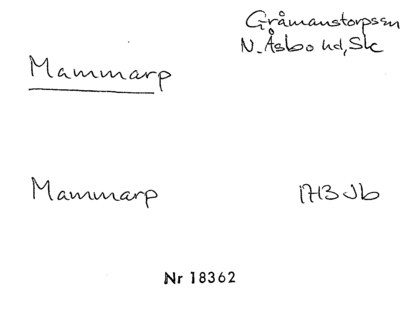 Gråmanstorps sn
N. Åsbo hd, Sk
Mammarp
Mammarp 1713 Jb
Nr 18362